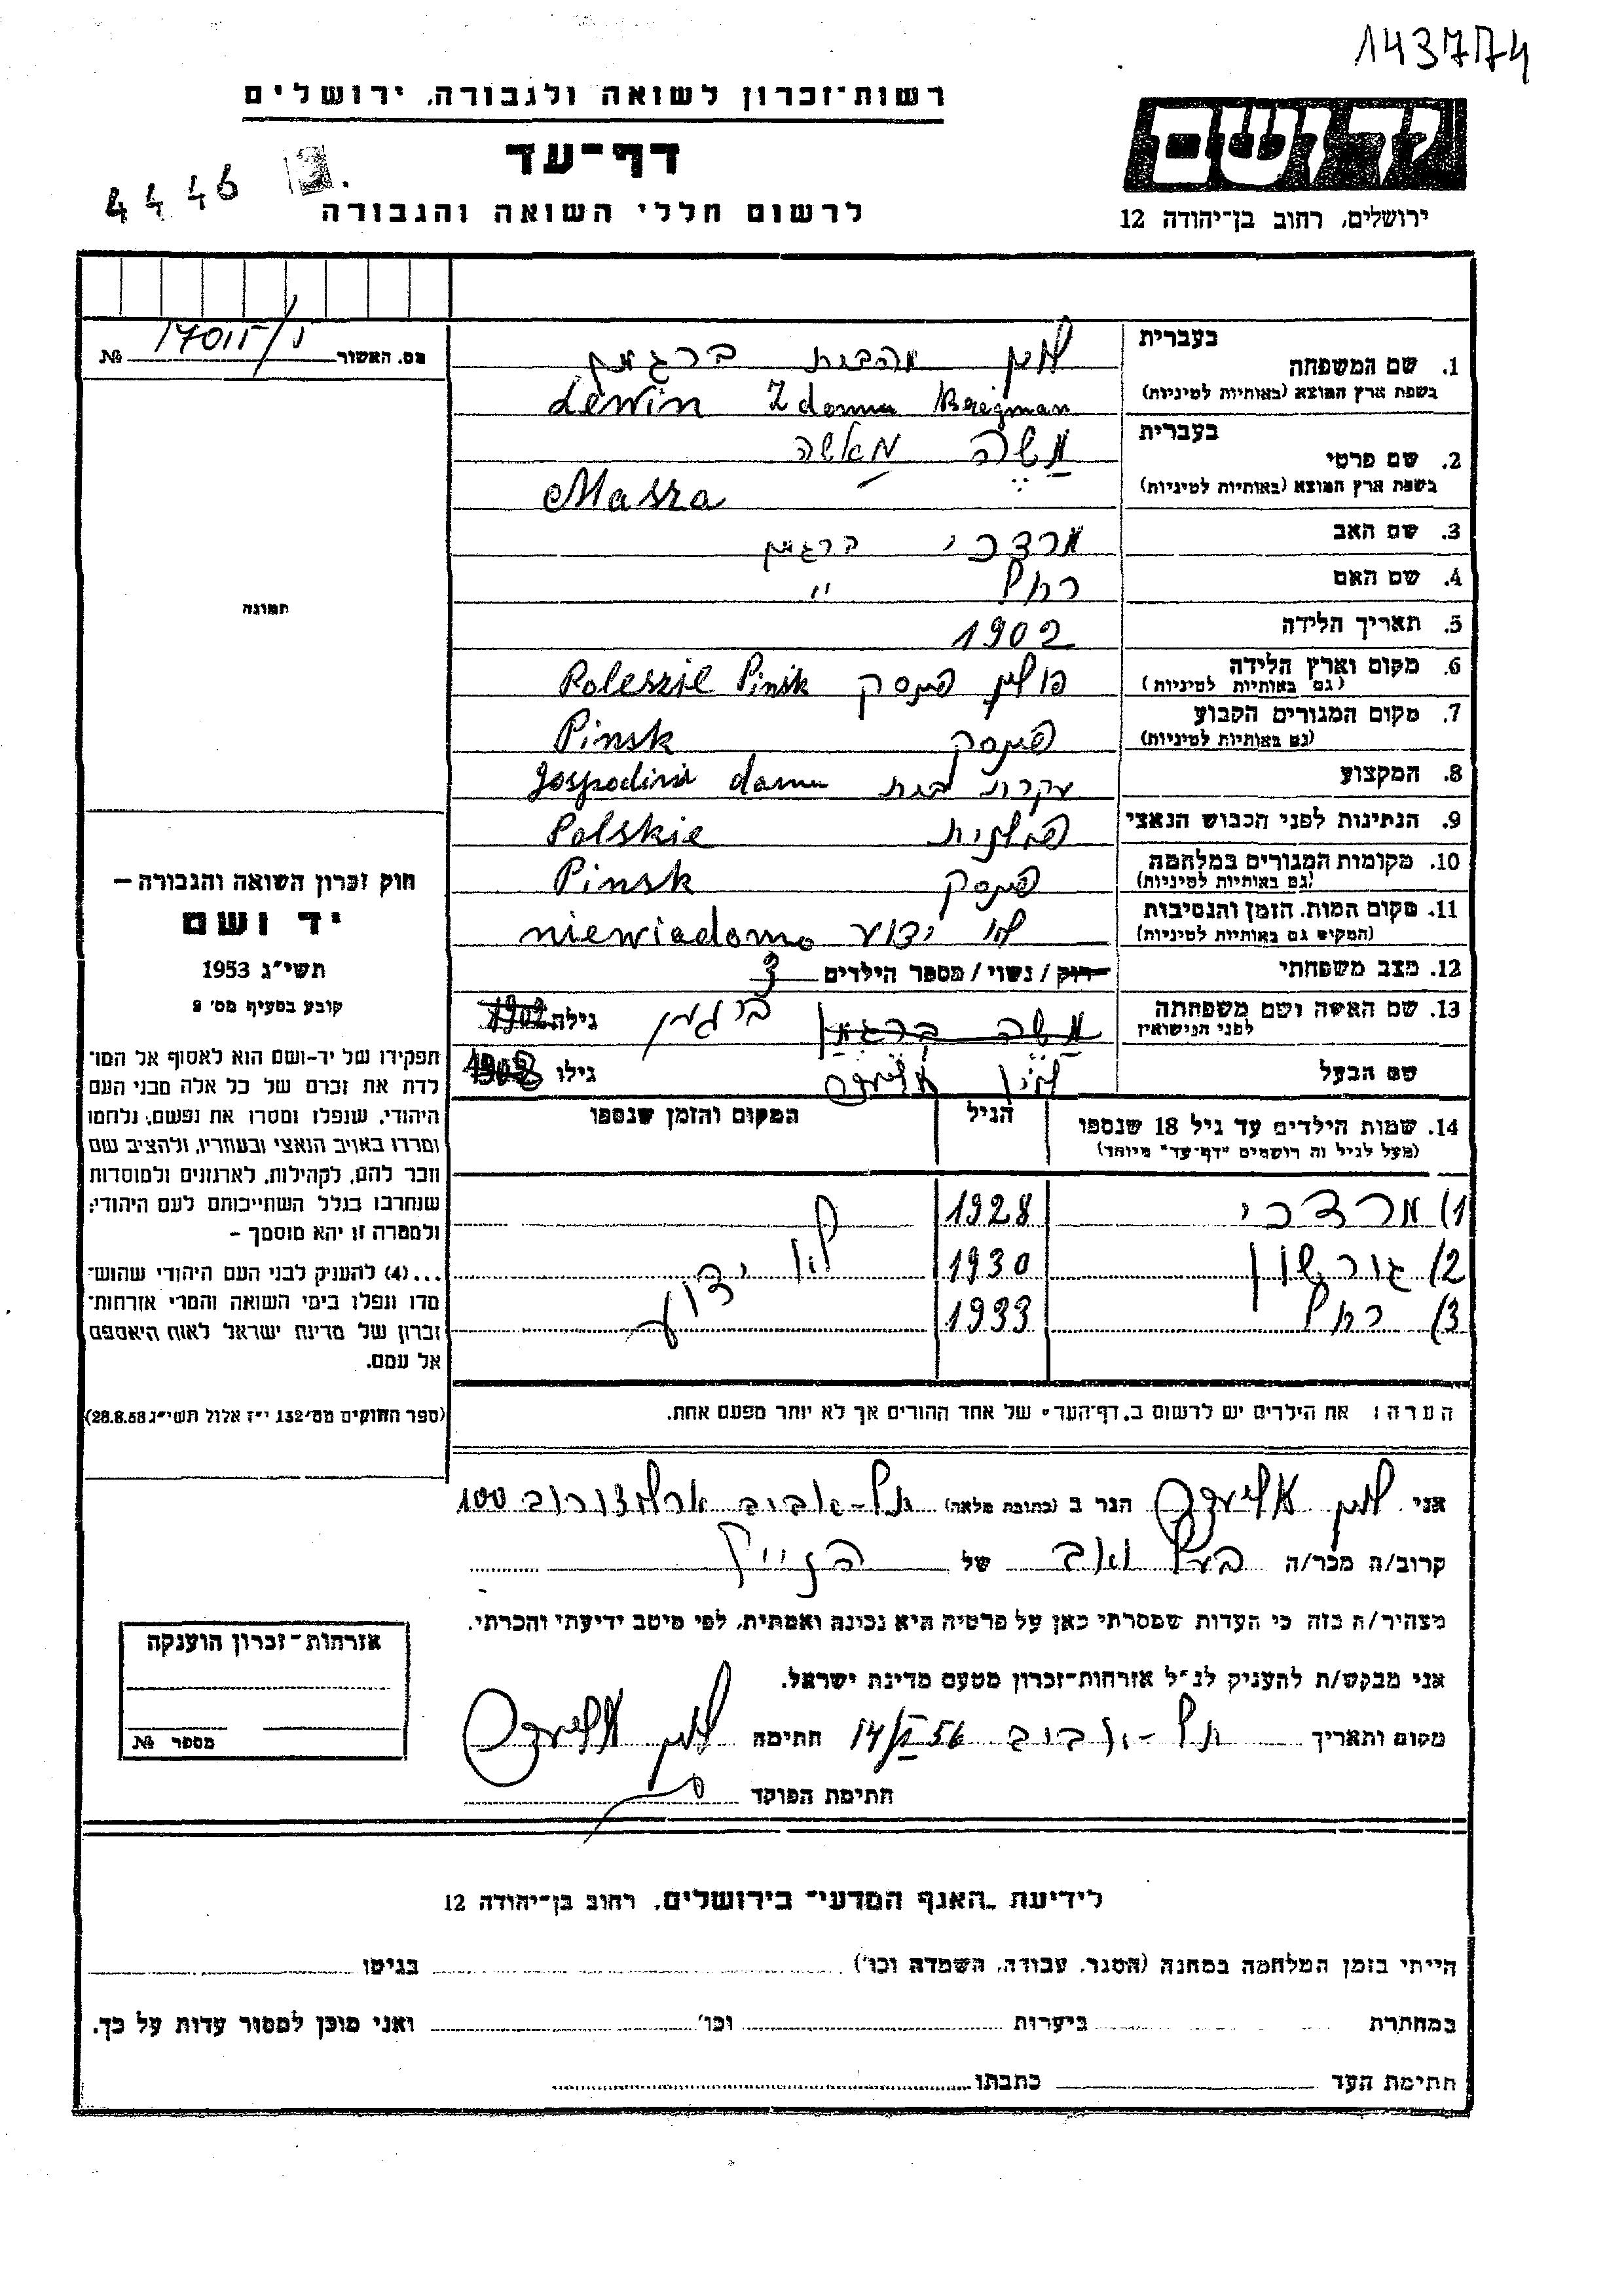 143774
רשות־זכרון לשואה ולגבורה, ירושלים
דף־עד
4446
לרשום חללי השואה והגבורה
יד ושם
ירושלים, רחוב בן־יהודה 12
מס. האשור 17015/ №
בעברית
1. שם המשפחה לוין מהבית ברגמן
בשפת ארץ המוצא (באותיות לטיניות) Lewin Z domu Bregman
בעברית
2. שם פרטי משה מאשה
בשפת ארץ המוצא (באותיות לטיניות) Masza
3. שם האב מרדכי ברגמן
4. שם האם רחל "
5. תאריך הלידה 1902
6. מקום וארץ הלידה פולין פינסק Poleszie Pinsk
(גם באותיות לטיניות)
7. מקום המגורים הקבוע פינסק Pinsk
(גם באותיות לטיניות)
8. המקצוע עקרת בית Gospodini domu
9. הנתינות לפני הכבוש הנאצי פולנית Polskie
10. מקומות המגורים במלחמה פינסק Pinsk
(גם באותיות לטיניות)
11. מקום המות, הזמן והנסיבות לא ידוע niewiadomo
(המקום גם באותיות לטיניות)
12. מצב משפחתי רוק / נשוי / מספר הילדים 3
13. שם האשה ושם משפחתה משה ברגמן ברגמן גילה 1902
לפני הנישואין
שם הבעל לוין גילו
תמונה
חוק זכרון השואה והגבורה –
יד ושם
תשי״ג 1953
קובע בסעיף מס׳ 2
תפקידו של יד-ושם הוא לאסוף אל המו־
לדת את זכרם של כל אלה מבני העם
היהודי, שנפלו ומסרו את נפשם, נלחמו
ומרדו באויב הנאצי ובעוזריו, ולהציב שם
וזכר להם, לקהילות, לארגונים ולמוסדות
שנחרבו בגלל השתייכותם לעם היהודי;
ולמטרה זו יהא מוסמך –
...(4) להעניק לבני העם היהודי שהוש־
מדו ונפלו בימי השואה והמרי אזרחות־
זכרון של מדינת ישראל לאות היאספם
אל עמם.
(ספר החוקים מס׳ 132 י״ז אלול תשי״ג 28.8.53)
14. שמות הילדים עד גיל 18 שנספו הגיל המקום והזמן שנספו
(מעל לגיל זה רושמים "דף־עד" מיוחד)
1) מרדכי 1928
2) גורשון 1930 לא ידוע
3) רחל 1933
הערה: את הילדים יש לרשום ב"דף־העד" של אחד ההורים אך לא יותר מפעם אחת.
אני לוין הגר ב (כתובת מלאה) תל-אביב ארלוזורוב 100
קרוב/ה מכר/ה בעל ואב של הנייל
מצהיר/ה בזה כי העדות שמסרתי כאן על פרטיה היא נכונה ואמתית, לפי מיטב ידיעתי והכרתי.
אני מבקש/ת להעניק לנ״ל אזרחות־זכרון מטעם מדינת ישראל.
מקום ותאריך תל-אביב 14/II 56 חתימה לוין
חתימת הפוקד
אזרחות־זכרון הוענקה
מספר №
לידיעת "האגף המדעי" בירושלים, רחוב בן־יהודה 12
הייתי בזמן המלחמה במחנה (הסגר, עבודה, השמדה וכו׳) בגיטו
במחתרת ביערות וכו׳ ואני מוכן למסור עדות על כך.
חתימת העד כתבתו